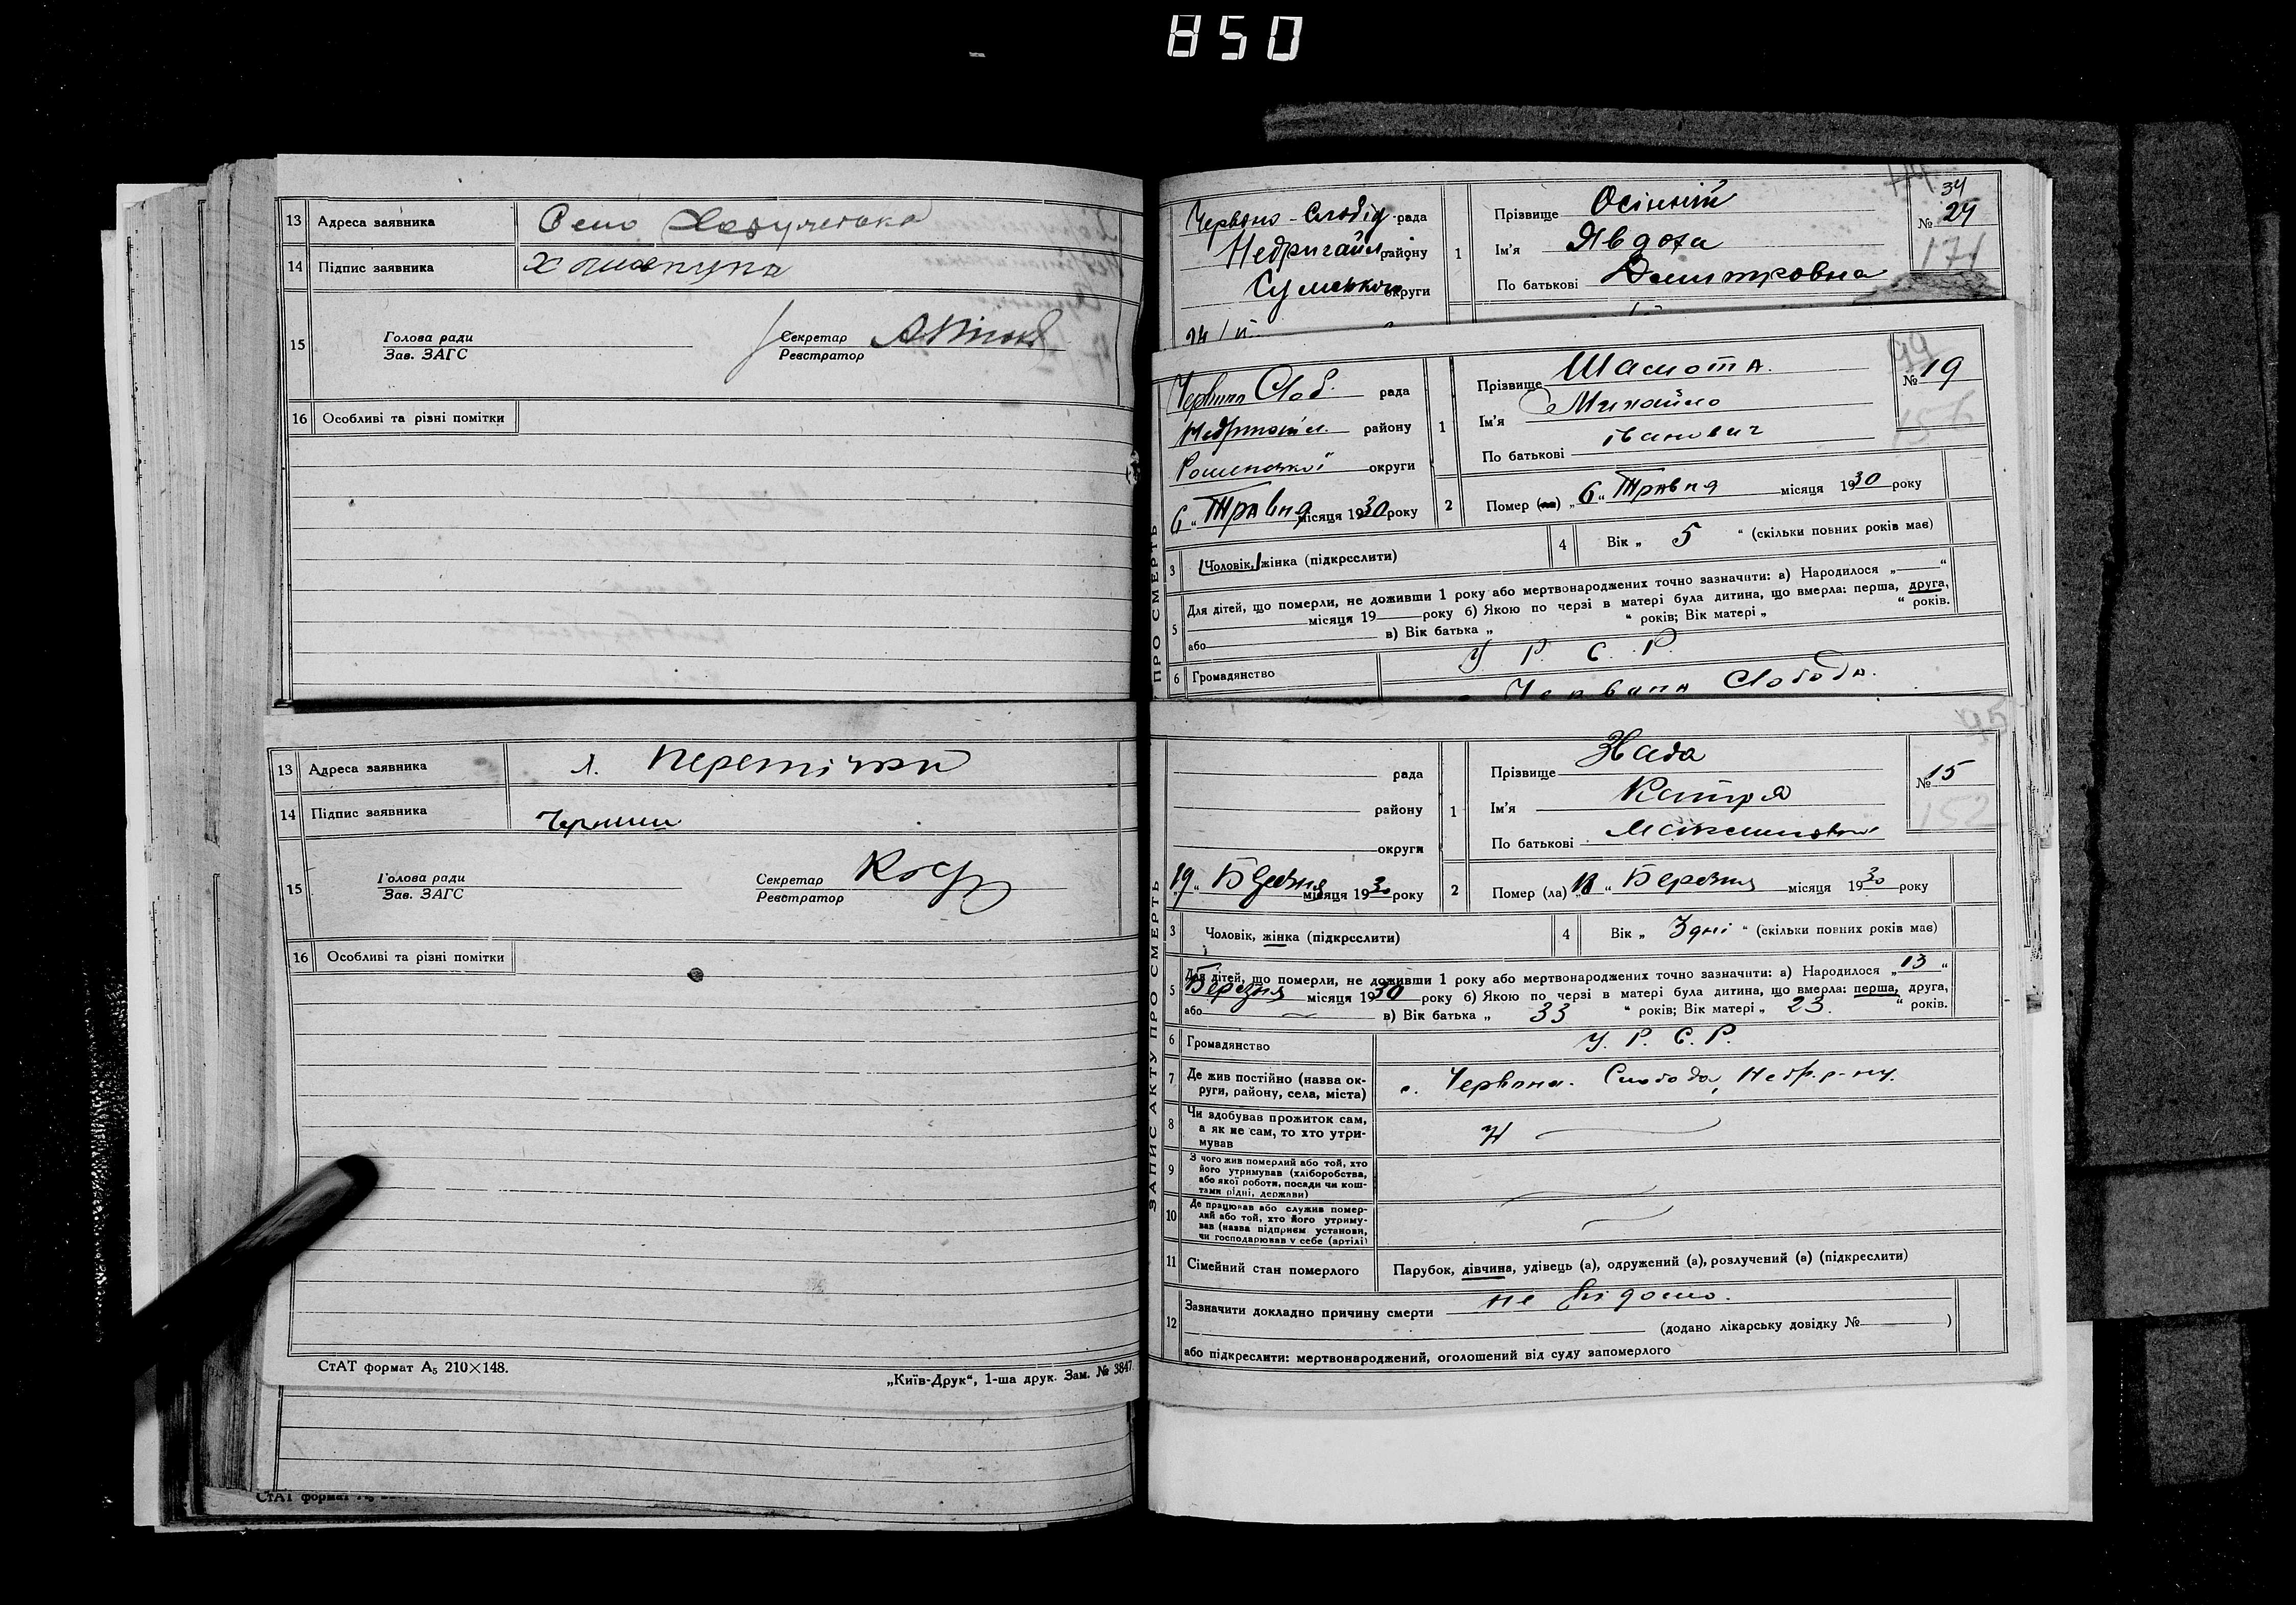 850
13 Адреса заявника Село
14 Підпис заявника
15 Голова ради Секретар
Зав. ЗАГС Реєстратор
16 Особливі та різні помітки
13 Адреса заявника х. Перетічки
14 Підпис заявника
15 Голова ради Секретар
Зав. ЗАГС Реєстратор
16 Особливі та різні помітки
СтАТ формат А5 210×148.
„Київ-Друк“, 1-ша друк. Зам. № 3847.
СтАТ формат А5
Червоно-Слобід. рада
Недригайл. району
Сумської округи
1 Прізвище Осінній
Ім'я Явдоха
По батькові Дмитровна
34
№ 24
171
99
№ 19
156
Червона Слоб. рада
Недригайл. району
Роменської округи
6 „ Травня місяця 1930 року
1 Прізвище Шамота.
Ім'я Михайло
По батькові Іванович
2 Помер (ла) „ 6 „ Травня місяця 1930 року
3 Чоловік, жінка (підкреслити)
4 Вік „ 5 “ (скільки повних років має)
5 Для дітей, що померли, не доживши 1 року або мертвонароджених точно зазначити: а) Народилося „ “
місяця 19 року б) Якою по черзі в матері була дитина, що вмерла: перша, друга,
або в) Вік батька „ “ років; Вік матері „ “ років.
6 Громадянство У. Р. С. Р.
Червона Слобода.
ПРО СМЕРТЬ
95
№ 15
152
рада
району
округи
19 „ Березня місяця 1930 року
1 Прізвище
Ім'я Катря
По батькові Максимовна
2 Помер (ла) „ „ Березня місяця 1930 року
3 Чоловік, жінка (підкреслити)
4 Вік „ 3 дні “ (скільки повних років має)
5 Для дітей, що померли, не доживши 1 року або мертвонароджених точно зазначити: а) Народилося „ 13 “
Березня місяця 1930 року б) Якою по черзі в матері була дитина, що вмерла: перша, друга,
або в) Вік батька „ 33 “ років; Вік матері „ 23. “ років.
6 Громадянство У. Р. С. Р.
7 Де жив постійно (назва ок-
руги, району, села, міста) с. Червона Слобода, Недр. р-ну.
8 Чи здобував прожиток сам,
а як не сам, то хто утри-
мував
9 З чого жив померлий або той, хто
його утримував (хліборобства,
або якої роботи, посади чи кош-
тами рідні, держави)
10 Де працював або служив помер-
лий або той, хто його утриму-
вав (назва підприєм. установи,
чи господарював у себе (артілі)
11 Сімейний стан померлого Парубок, дівчина, удівець (а), одружений (а), розлучений (а) (підкреслити)
12 Зазначити докладно причину смерти не відомо.
(додано лікарську довідку № )
або підкреслити: мертвонароджений, оголошений від суду запомерлого
ЗАПИС АКТУ ПРО СМЕРТЬ